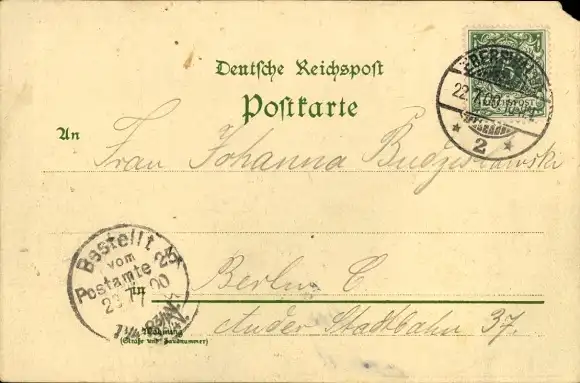 Deutsche Reichspost
Postkarte
An
Frau Johanna Budzislawski
Bestellt
vom
Postamte 25
23/7 00
22.7.00
* 2 *
in
Berlin C
An der Stadtbahn 37.
Wohnung
(Straße und Hausnummer)